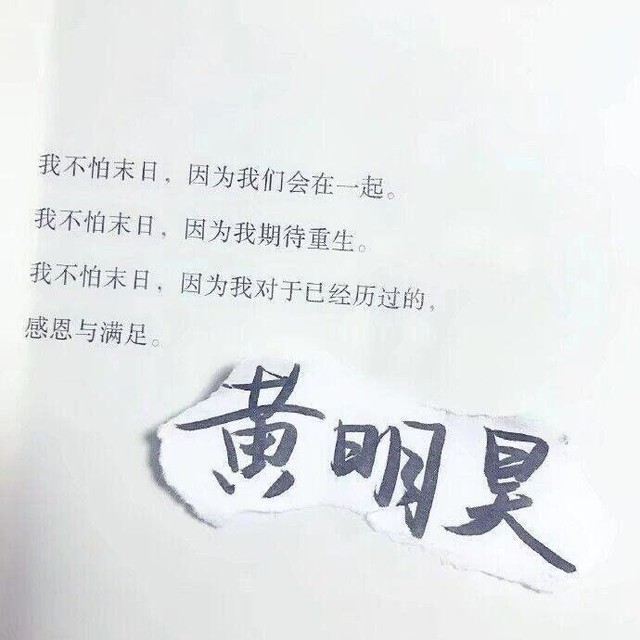 我不怕末日，因为我们会在一起。
我不怕末日，因为我期待重生。
我不怕末日，因为我对于已经历过的，
感恩与满足。
黄明昊